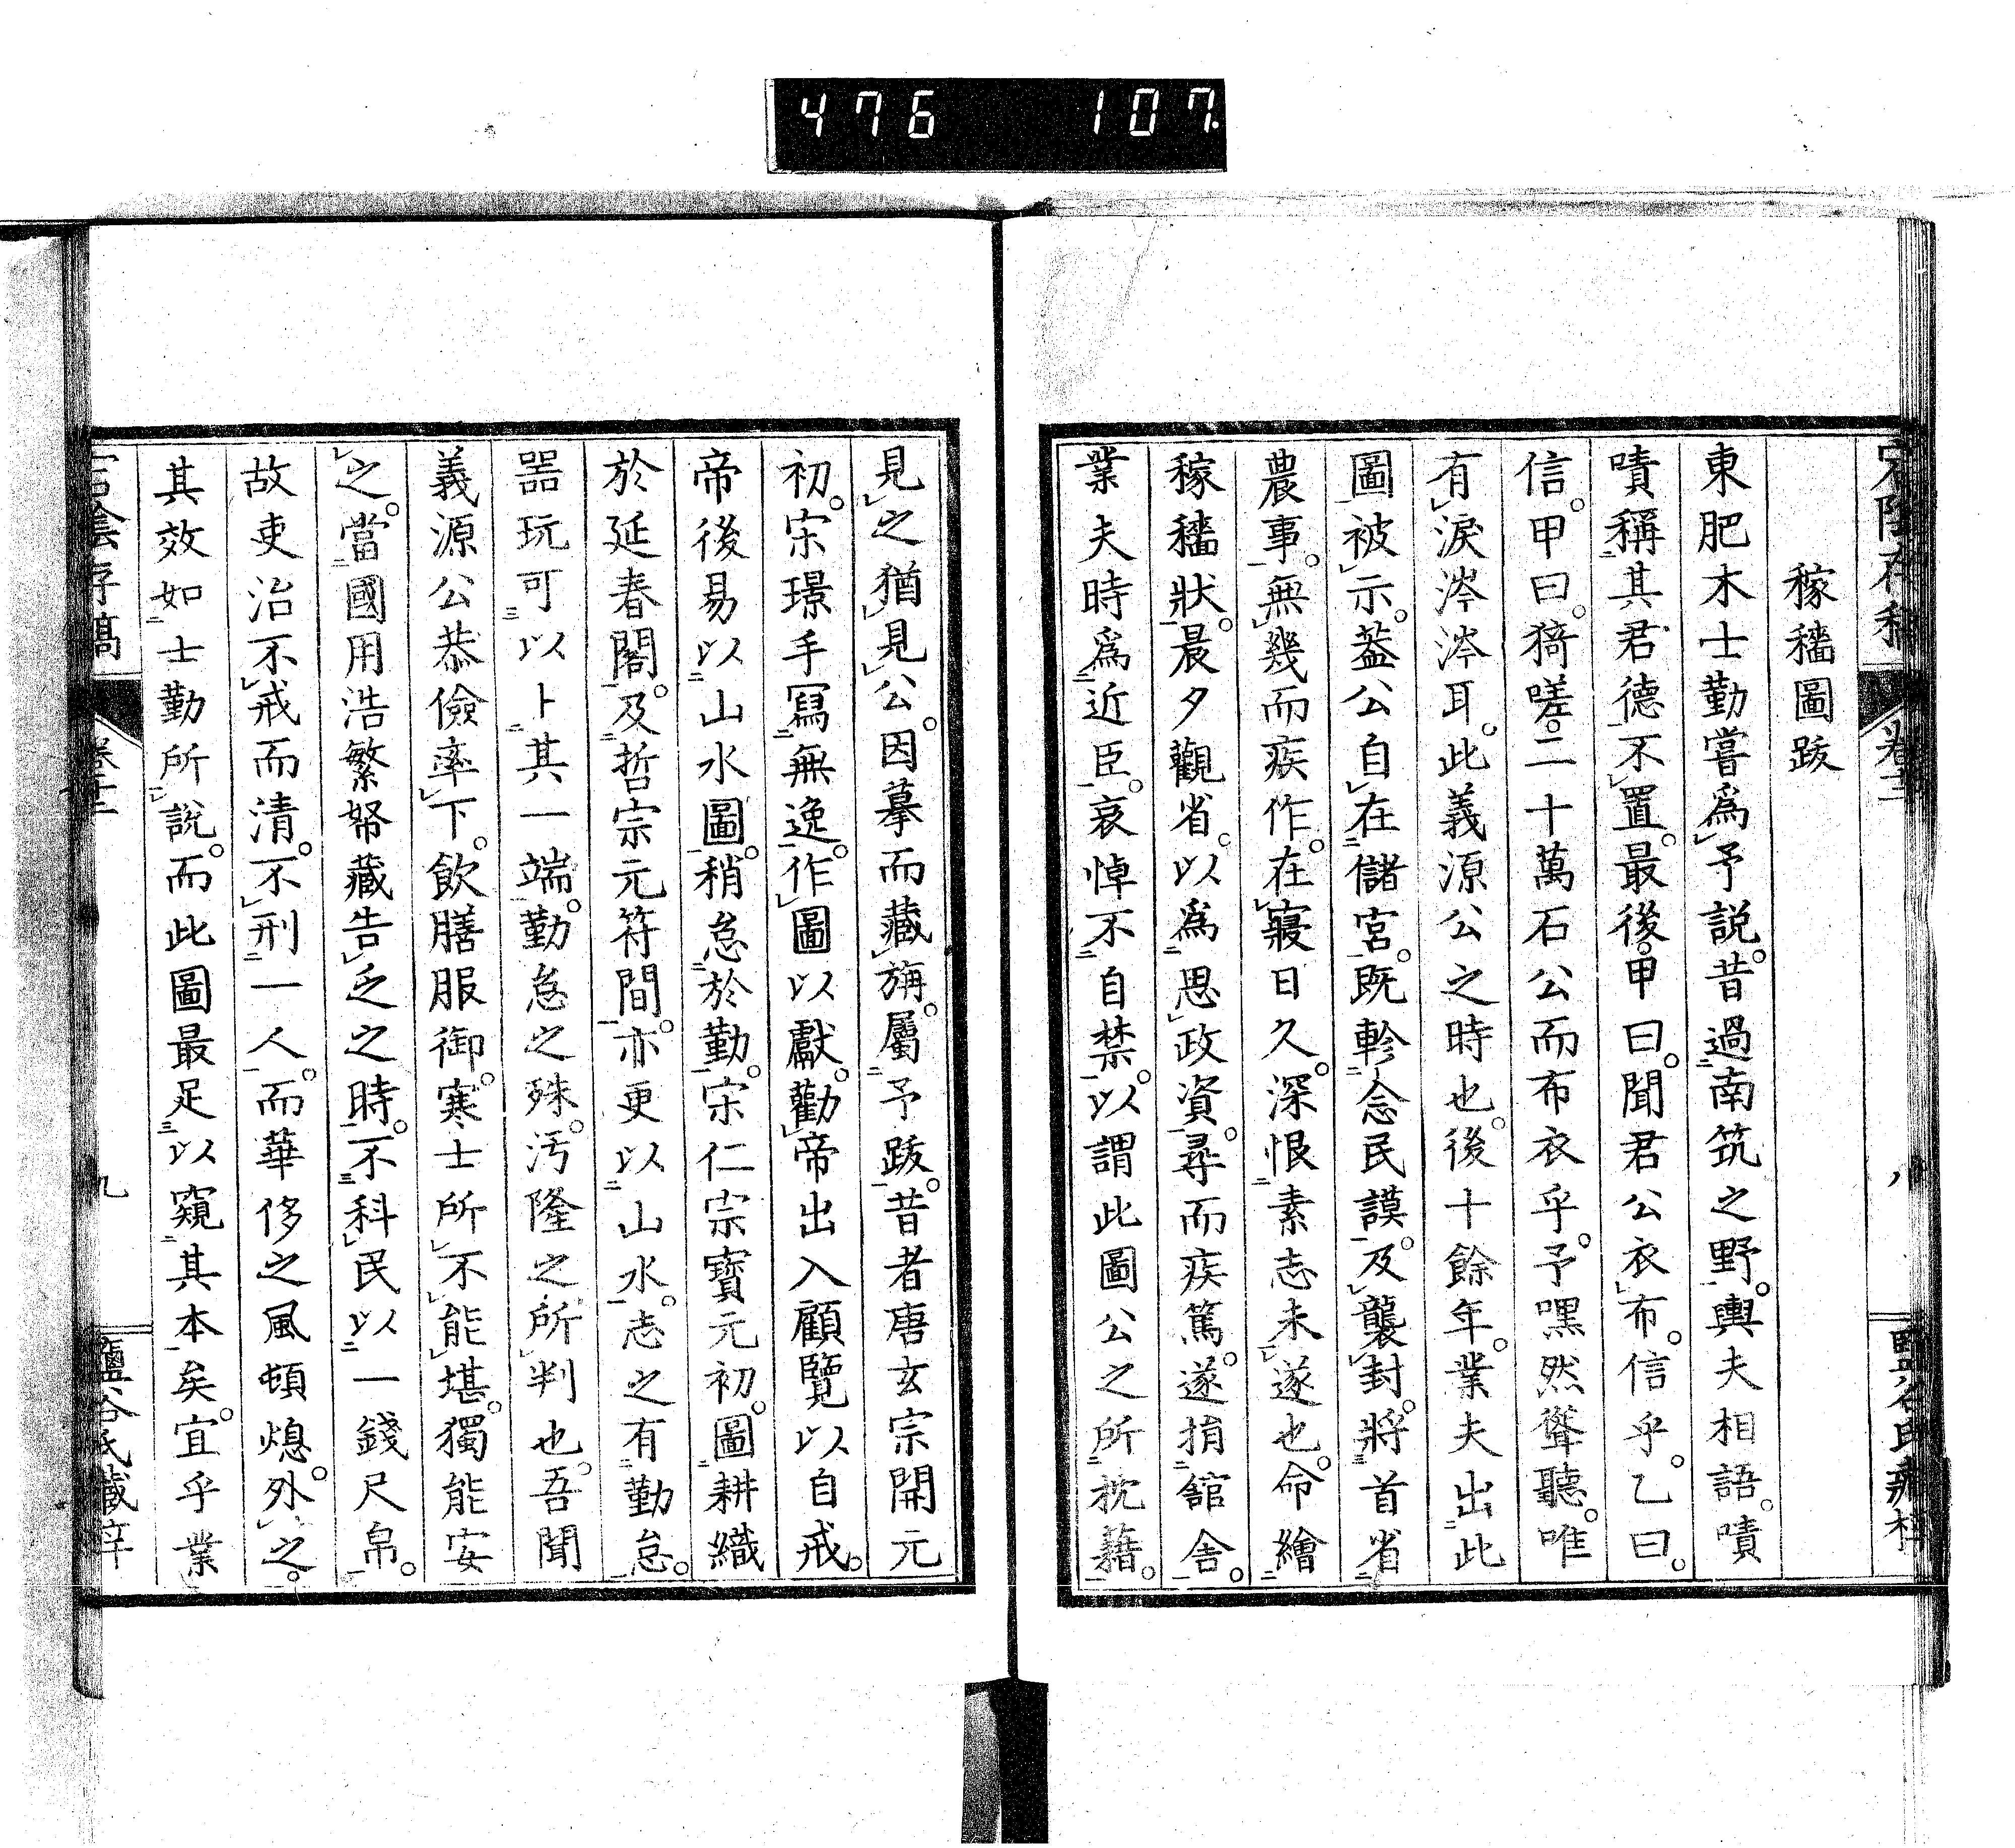 476 107
宕陰存稿 卷十二 八
稼穡圖跋
東肥木士勤嘗爲予説。昔過南筑之野。輿夫相語。嘖
嘖稱其君德不置。最後。甲曰。聞君公衣布。信乎。乙曰。
信。甲曰。猗嗟。二十萬石公而布衣乎。予嘿然聳聽。唯
有淚涔涔耳。此義源公之時也。後十餘年。業夫出此
圖被示。葢公自在儲宮。既軫念民謨。及襲封。將首省
農事。無幾而疾作。在寢日久。深恨素志未遂也。命繪
稼穡狀。晨夕觀省。以爲思政資。尋而疾篤。遂捐館舍。
業夫時爲近臣。哀悼不自禁。以謂此圖公之所枕藉。
見之猶見公。因摹而藏旃。屬予跋。昔者唐玄宗開元
初。宋璟手寫無逸作圖以獻。勸帝出入顧覽以自戒。
帝後易以山水圖。稍怠於勤。宋仁宗寶元初。圖耕織
於延春閣。及哲宗元符間。亦更以山水。志之有勤怠。
噐玩可以卜其一端。勤怠之殊。汚隆之所判也。吾聞
義源公恭儉率下。飲膳服御。寒士所不能堪。獨能安
之。當國用浩繁帑藏告乏之時。不科民以一錢尺帛。
故吏治不戒而清。不刑一人。而華侈之風頓熄。外之。
其效如士勤所說。而此圖最足以窺其本矣。宜乎業
宕陰存稿 卷十二 九 鹽谷氏藏梓